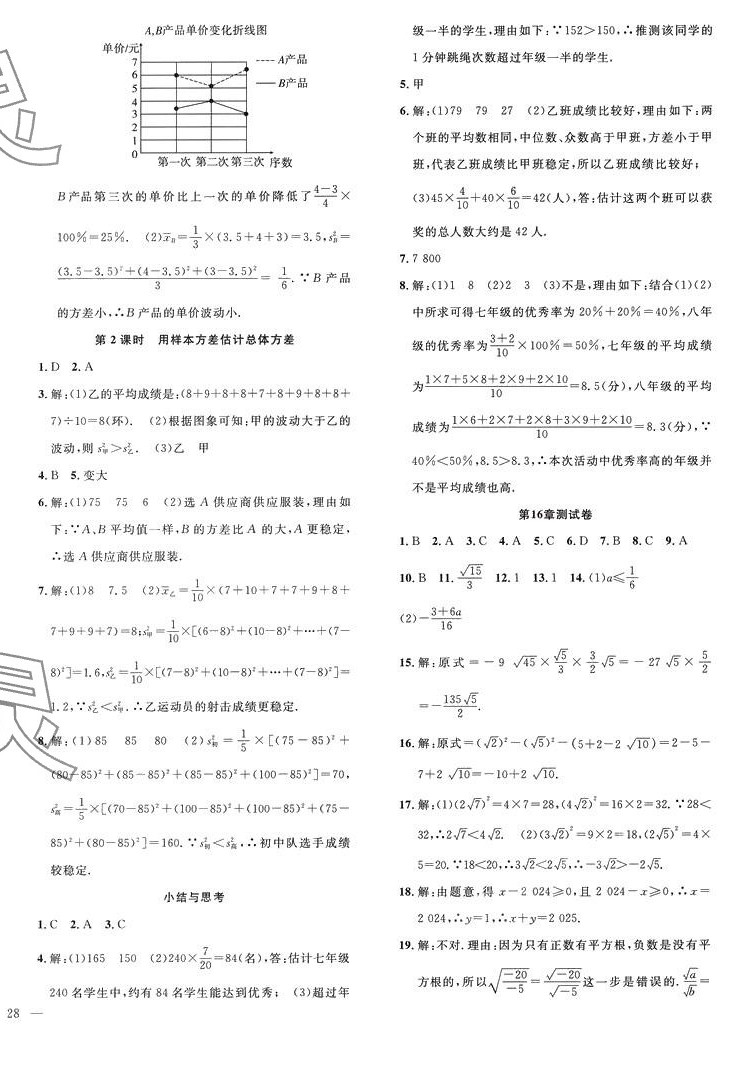 A,B产品单价变化折线图
单价/元
7
6
5
4
3
2
1
0
A产品
B产品
第一次 第二次 第三次 序数
B产品第三次的单价比上一次的单价降低了\frac{4-3}{4}×
100%=25%. (2)\overline{x}_B=\frac{1}{3}×(3.5+4+3)=3.5,s²_B=
\frac{(3.5-3.5)²+(4-3.5)²+(3-3.5)²}{3}=\frac{1}{6}.∵B产品
的方差小,∴B产品的单价波动小.
第2课时 用样本方差估计总体方差
1.D 2.A
3.解:(1)乙的平均成绩是:(8+9+8+8+7+8+9+8+8+
7)÷10=8(环). (2)根据图象可知:甲的波动大于乙的
波动,则s²_甲>s²_乙. (3)乙 甲
4.B 5.变大
6.解:(1)75 75 6 (2)选A供应商供应服装,理由如
下:∵A、B平均值一样,B的方差比A的大,A更稳定,
∴选A供应商供应服装.
7.解:(1)8 7.5 (2)\overline{x}_乙=\frac{1}{10}×(7+10+7+7+9+8+
7+9+9+7)=8;s²_甲=\frac{1}{10}×[(6-8)²+(10-8)²+…+(7-
8)²]=1.6,s²_乙=\frac{1}{10}×[(7-8)²+(10-8)²+…+(7-8)²]=
1.2,∵s²_乙<s²_甲.∴乙运动员的射击成绩更稳定.
8.解:(1)85 85 80 (2)s²_初=\frac{1}{5}×[(75-85)²+
(80-85)²+(85-85)²+(85-85)²+(100-85)²]=70,
s²_高=\frac{1}{5}×[(70-85)²+(100-85)²+(100-85)²+(75-
85)²+(80-85)²]=160.∵s²_初<s²_高,∴初中队选手成绩
较稳定.
小结与思考
1.C 2.A 3.C
4.解:(1)165 150 (2)240×\frac{7}{20}=84(名),答:估计七年级
240名学生中,约有84名学生能达到优秀; (3)超过年
28 —
级一半的学生,理由如下:∵152>150,∴推测该同学的
1分钟跳绳次数超过年级一半的学生.
5.甲
6.解:(1)79 79 27 (2)乙班成绩比较好,理由如下:两
个班的平均数相同,中位数、众数高于甲班,方差小于甲
班,代表乙班成绩比甲班稳定,所以乙班成绩比较好;
(3)45×\frac{4}{10}+40×\frac{6}{10}=42(人),答:估计这两个班可以获
奖的总人数大约是42人.
7.7 800
8.解:(1)1 8 (2)2 3 (3)不是,理由如下:结合(1)(2)
中所求可得七年级的优秀率为20%+20%=40%,八年
级的优秀率为\frac{3+2}{10}×100%=50%,七年级的平均成绩
为\frac{1×7+5×8+2×9+2×10}{10}=8.5(分),八年级的平均
成绩为\frac{1×6+2×7+2×8+3×9+2×10}{10}=8.3(分),∵
40%<50%,8.5>8.3,∴本次活动中优秀率高的年级并
不是平均成绩也高.
第16章测试卷
1.B 2.A 3.C 4.A 5.C 6.D 7.B 8.C 9.A
10.B 11.\frac{\sqrt{15}}{3} 12.1 13.1 14.(1)a≤\frac{1}{6}
(2)-\frac{3+6a}{16}
15.解:原式=-9\sqrt{45}×\frac{\sqrt{5}}{3}×\frac{3}{2}\sqrt{5}=-27\sqrt{5}×\frac{5}{2}
=-\frac{135\sqrt{5}}{2}.
16.解:原式=(\sqrt{2})²-(\sqrt{5})²-(5+2-2\sqrt{10})=2-5-
7+2\sqrt{10}=-10+2\sqrt{10}.
17.解:(1)(2\sqrt{7})²=4×7=28,(4\sqrt{2})²=16×2=32.∵28<
32,∴2\sqrt{7}<4\sqrt{2}. (2)(3\sqrt{2})²=9×2=18,(2\sqrt{5})²=4×
5=20.∵18<20,∴3\sqrt{2}<2\sqrt{5},∴-3\sqrt{2}>-2\sqrt{5}.
18.解:由题意,得x-2 024≥0,且2 024-x≥0,∴x=
2 024,∴y=1,∴x+y=2 025.
19.解:不对.理由:因为只有正数有平方根,负数是没有平
方根的,所以\sqrt{\frac{-20}{-5}}=\frac{\sqrt{-20}}{\sqrt{-5}}这一步是错误的.\frac{\sqrt{a}}{\sqrt{b}}=